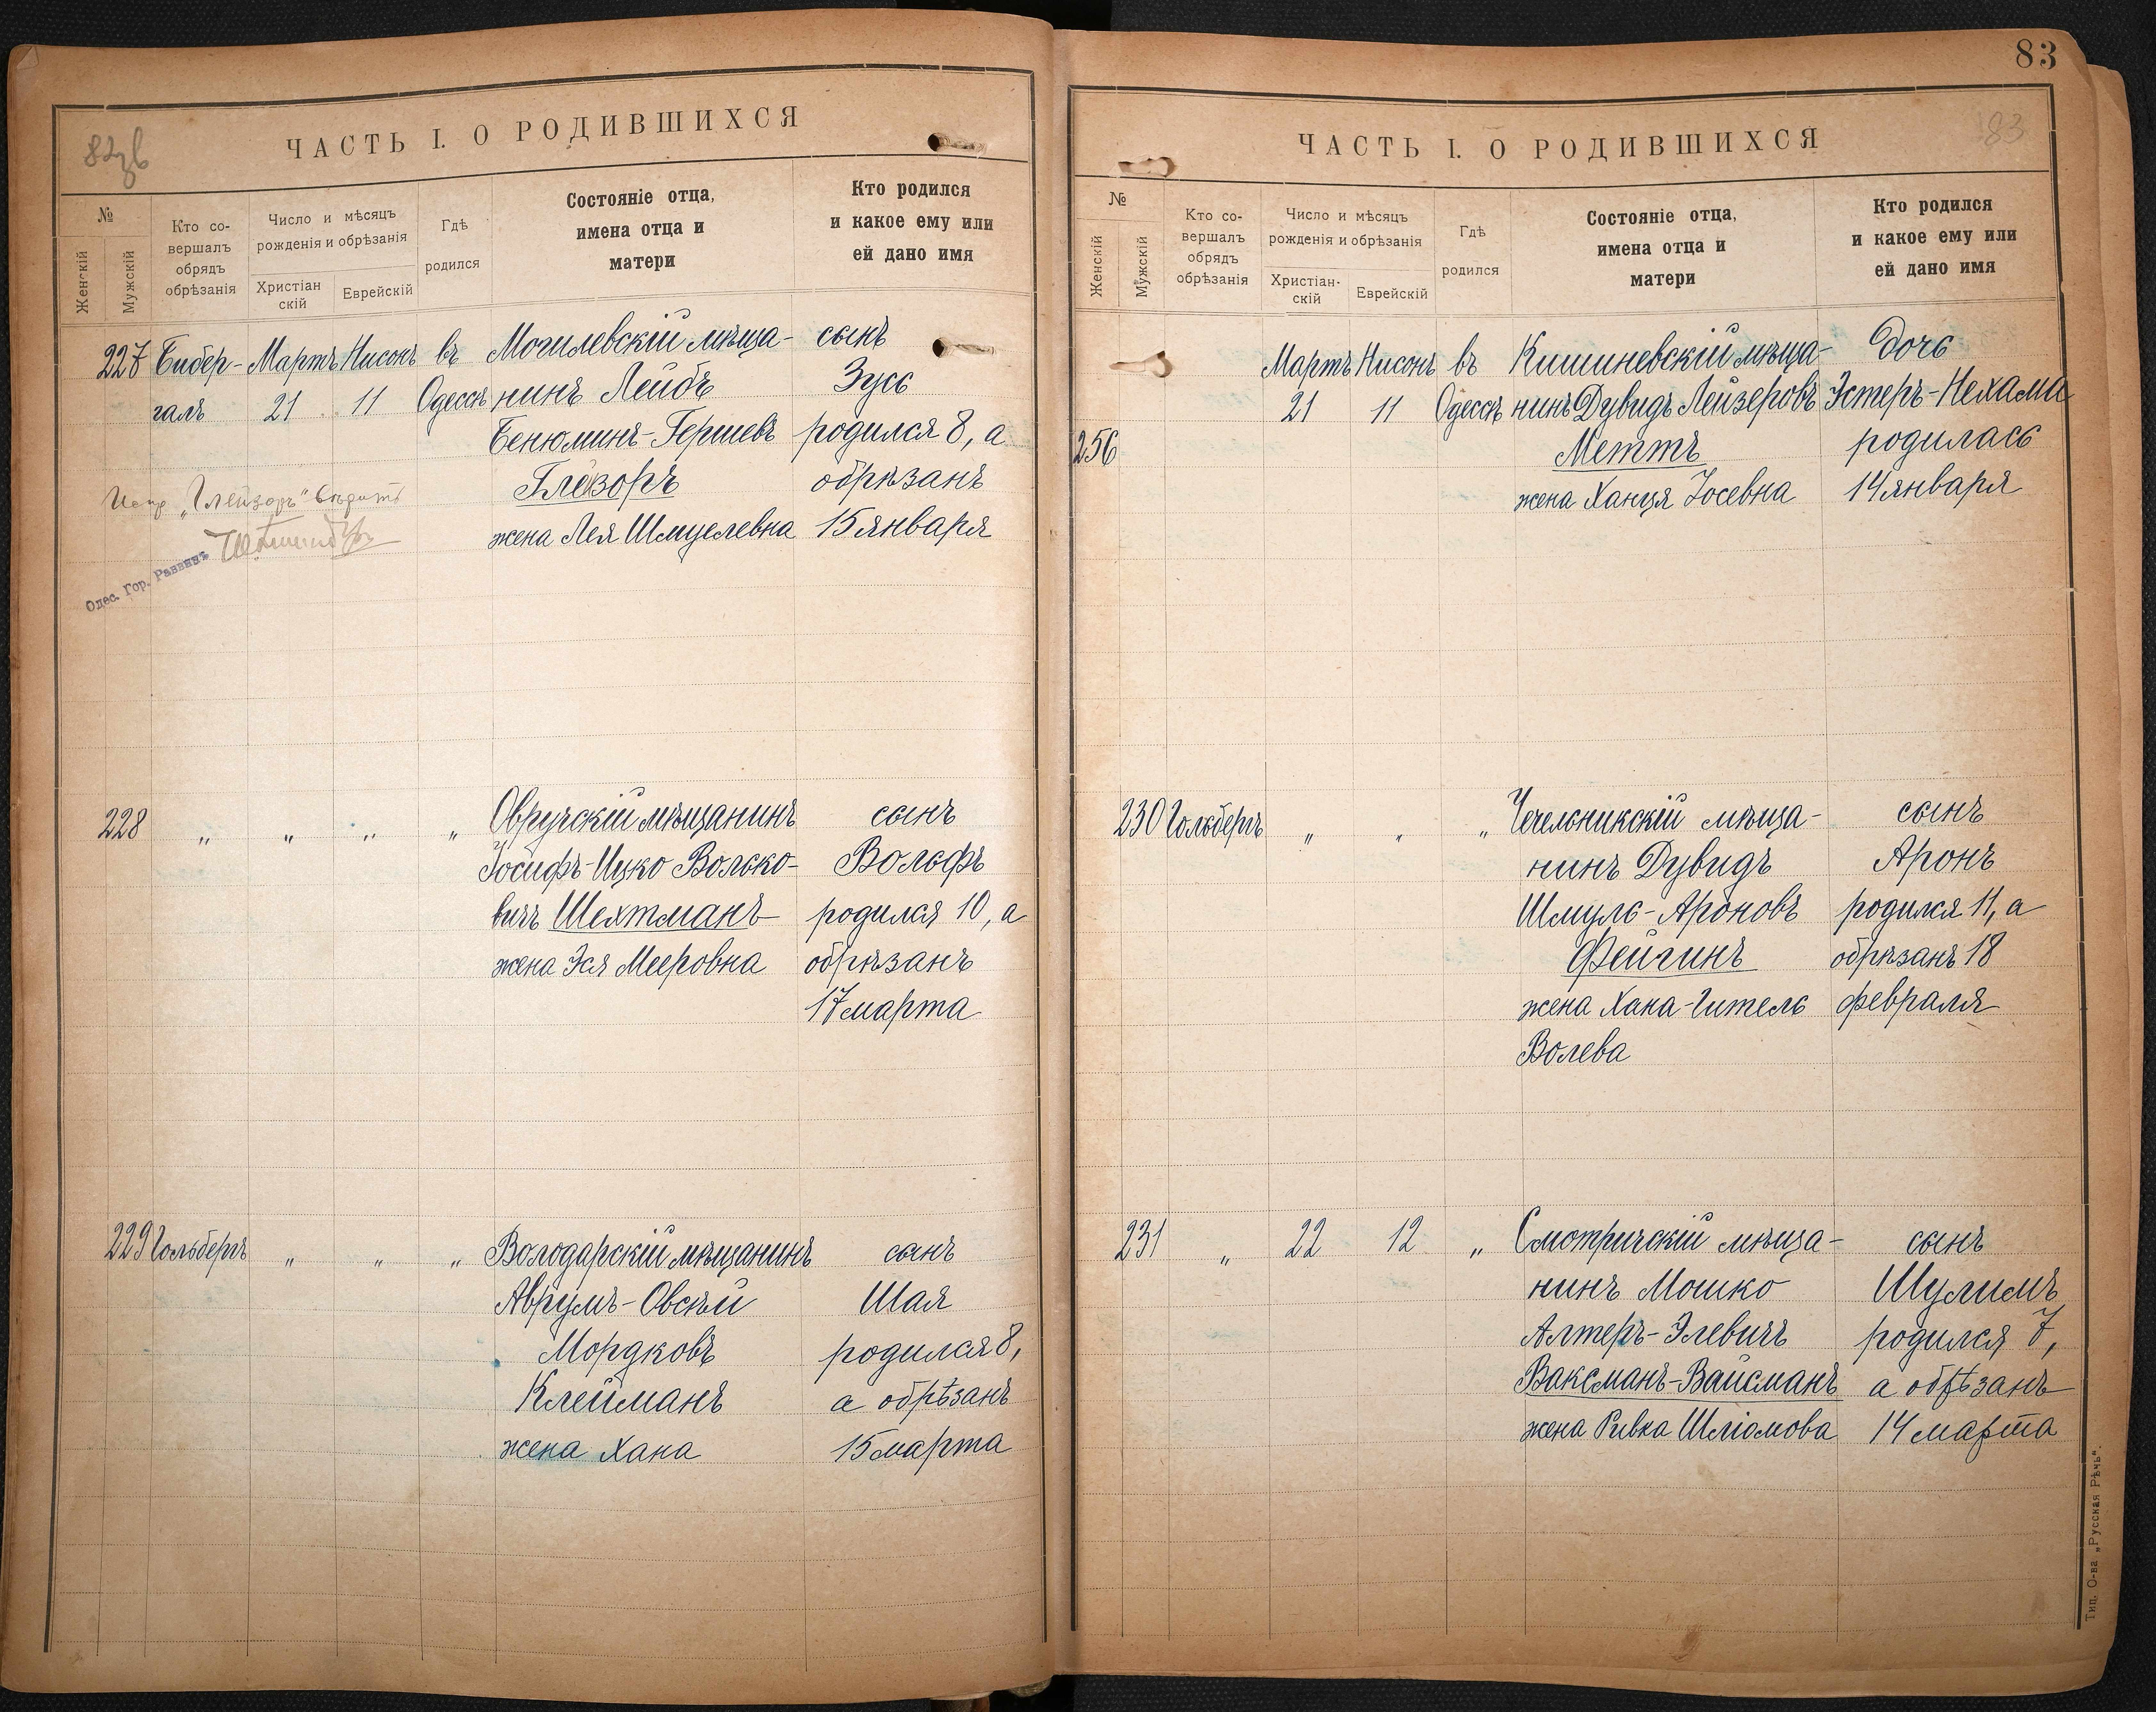 82зв
ЧАСТЬ I. О РОДИВШИХСЯ
№
Женскій
Мужскій
Кто со-
вершалъ
обрядъ
обрѣзанія
Число и мѣсяцъ
рожденія и обрѣзанія
Христіан
скій
Еврейскій
Гдѣ
родился
Состояніе отца,
имена отца и
матери
Кто родился
и какое ему или
ей дано имя
227 Бибер- Мартъ Нисонъ въ Могилевскій мѣща- сынъ
галъ 21 11 Одессѣ нинъ Лейбъ Зусь
Бенюминъ-Гершевъ родился 8, а
Глезоръ обрѣзанъ
жена Лея Шмуелевна 15 января
Испр „Глейзоръ“ вѣрить
Одес. Гор. Раввинъ
228 „ „ „ „ Овручскій мѣщанинъ сынъ
Іосифъ-Ицко Волько- Вольфъ
вичъ Шехтманъ родился 10, а
жена Эся Мееровна обрѣзанъ
17 марта
229 Гольбергъ „ „ „ Володарскій мѣщанинъ сынъ
Аврумъ-Овсѣй Шая
Мордковъ родился 8,
Клейманъ а обрѣзанъ
жена Хана 15 марта
83
83
ЧАСТЬ I. О РОДИВШИХСЯ
№
Женскій
Мужскій
Кто со-
вершалъ
обрядъ
обрѣзанія
Число и мѣсяцъ
рожденія и обрѣзанія
Христіан-
скій
Еврейскій
Гдѣ
родился
Состояніе отца,
имена отца и
матери
Кто родился
и какое ему или
ей дано имя
Мартъ Нисонъ въ Кишиневскій мѣща- дочь
21 11 Одессѣ нинъ Дувидъ Лейзеровъ Эстеръ-Нехама
256 Меттъ родилась
жена Ханця Іосевна 14 января
230 Гольбергъ „ „ „ Чечельникскій мѣща- сынъ
нинъ Дувидъ Аронъ
Шмуль-Ароновъ родился 11, а
Фейгинъ обрѣзанъ 18
жена Хана-Гитель февраля
Волева
231 „ 22 12 „ Смотричскій мѣща- сынъ
нинъ Мошко Шулимъ
Алтеръ-Элевичъ родился 7,
Ваксманъ-Вайсманъ а обрѣзанъ
жена Ривка Шліомова 14 марта
Тип. О-ва „Русская Рѣчь“.